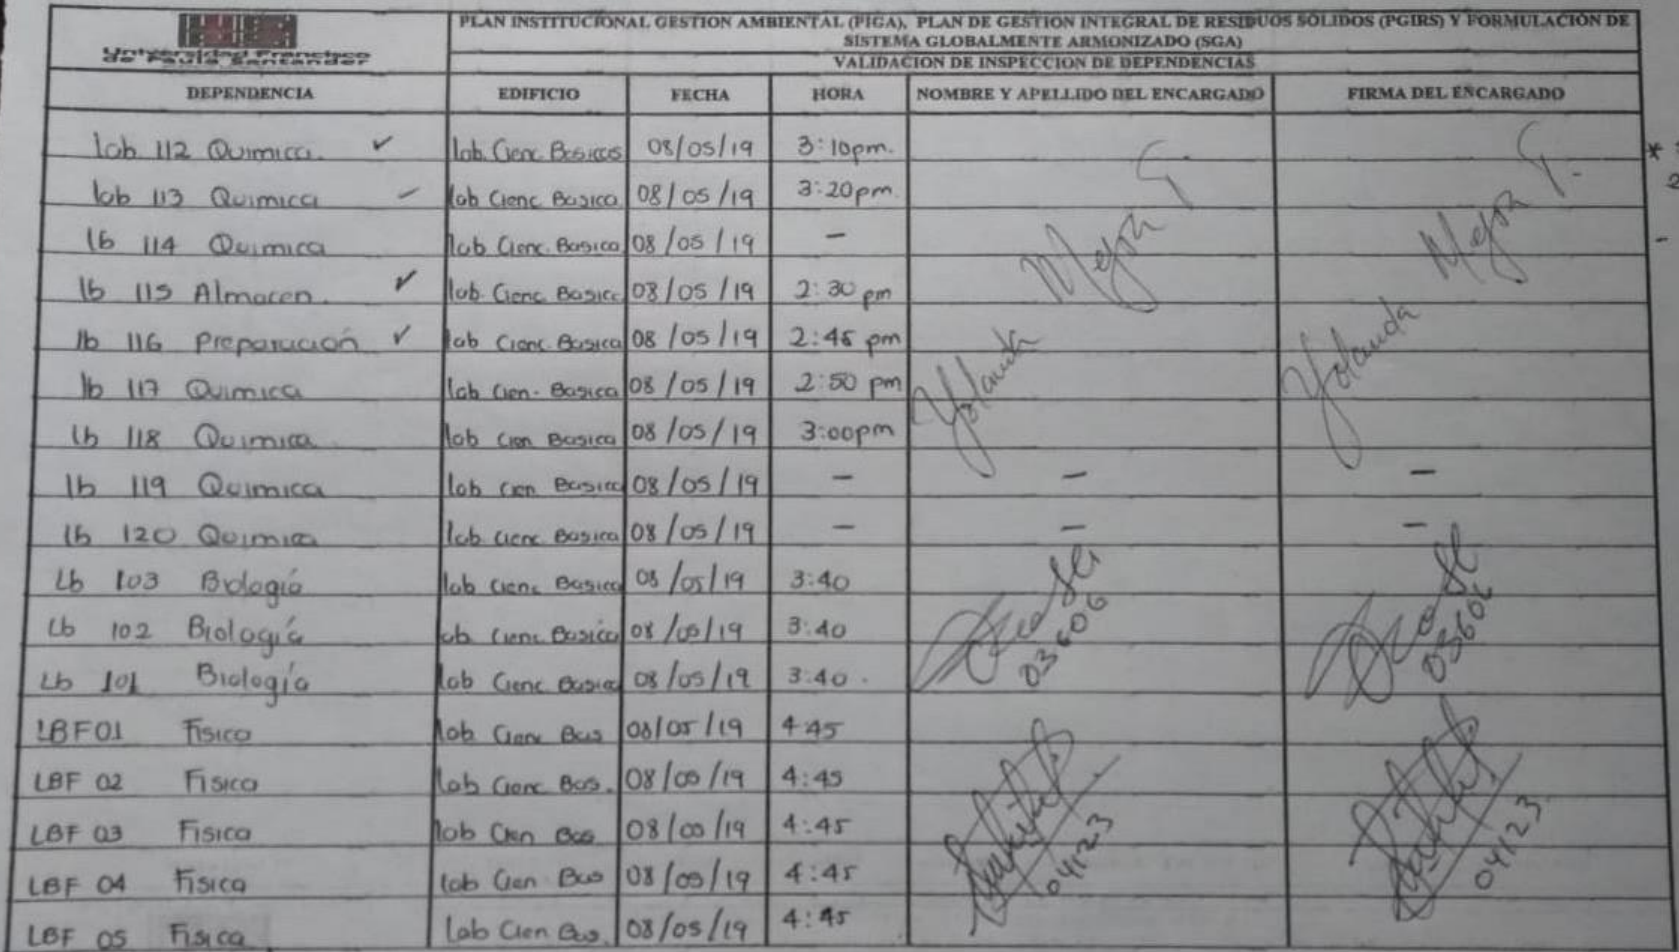 Universidad Francisco
de Paula Santander
PLAN INSTITUCIONAL GESTION AMBIENTAL (PIGA), PLAN DE GESTION INTEGRAL DE RESIDUOS SÓLIDOS (PGIRS) Y FORMULACIÓN DE
SISTEMA GLOBALMENTE ARMONIZADO (SGA)
VALIDACION DE INSPECCION DE DEPENDENCIAS
DEPENDENCIA EDIFICIO FECHA HORA NOMBRE Y APELLIDO DEL ENCARGADO FIRMA DEL ENCARGADO
lab 112 Quimica. ✓ lab. Cienc. Basicas 08/05/19 3:10pm.
lab 113 Quimica – lab Cienc Basica 08/05/19 3:20pm.
lb 114 Quimica lab Cienc. Basica 08/05/19 –
lb 115 Almacen. ✓ lab. Cienc. Basica 08/05/19 2:30 pm
lb 116 Preparación ✓ lab Cienc. Basica 08/05/19 2:45 pm
lb 117 Quimica lab Cien. Basica 08/05/19 2:50 pm
lb 118 Quimica lab Cien Basica 08/05/19 3:00pm
Yolanda Mejia G. Yolanda Mejia G.
lb 119 Quimica lab Cien Basica 08/05/19 – – –
lb 120 Quimica lab Cienc Basica 08/05/19 – – –
Lb 103 Biología lab Cienc Basica 08/05/19 3:40
Lb 102 Biología lab Cienc Basica 08/05/19 3:40
Lb 101 Biología lab Cienc Basica 08/05/19 3:40.
03606 03606
LBF01 Fisica lab Cienc Bas 08/05/19 4:45
LBF 02 Fisica lab Cienc Bas. 08/05/19 4:45
LBF 03 Fisica lab Cien Bas 08/05/19 4:45
LBF 04 Fisica lab Cien Bas 08/05/19 4:45
LBF 05 Fisica lab Cien Bas. 08/05/19 4:45
04123 04123